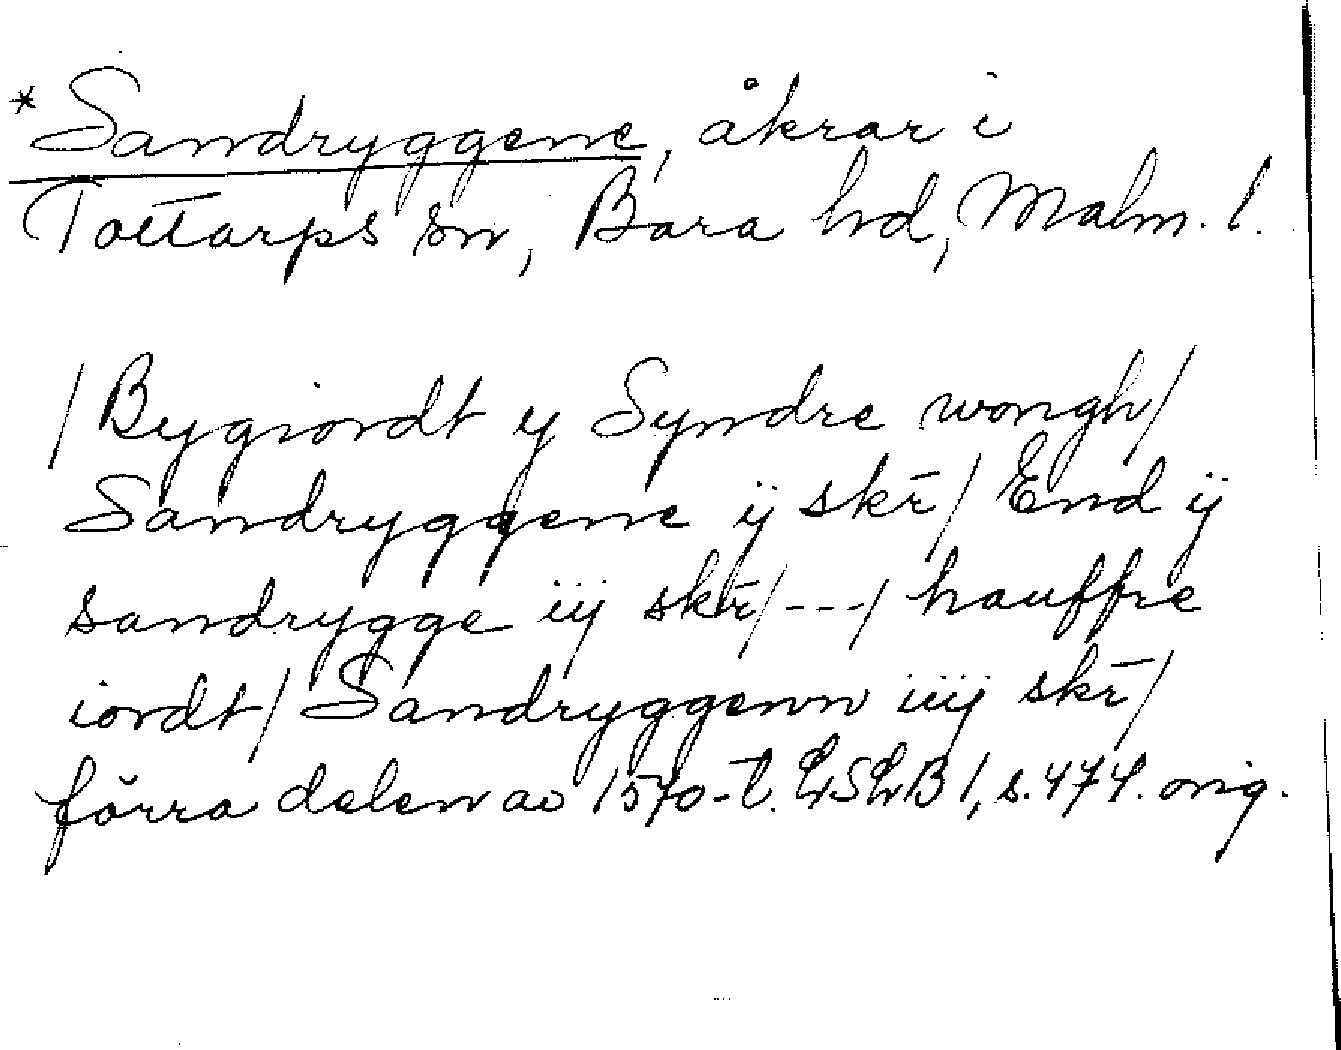 *Sandryggene, åkrar i
Tottarps sn, Bara hd, Malm. l.
/Bygiordt y Syndre wongh/
Sandryggene ij skr̄/ End ij
sandrygge iij skr̄/---/ hauffre
iordt/ Sandryggenn iiij skr̄/
förra delen av 1570-t. LSLB 1, s. 474. orig.